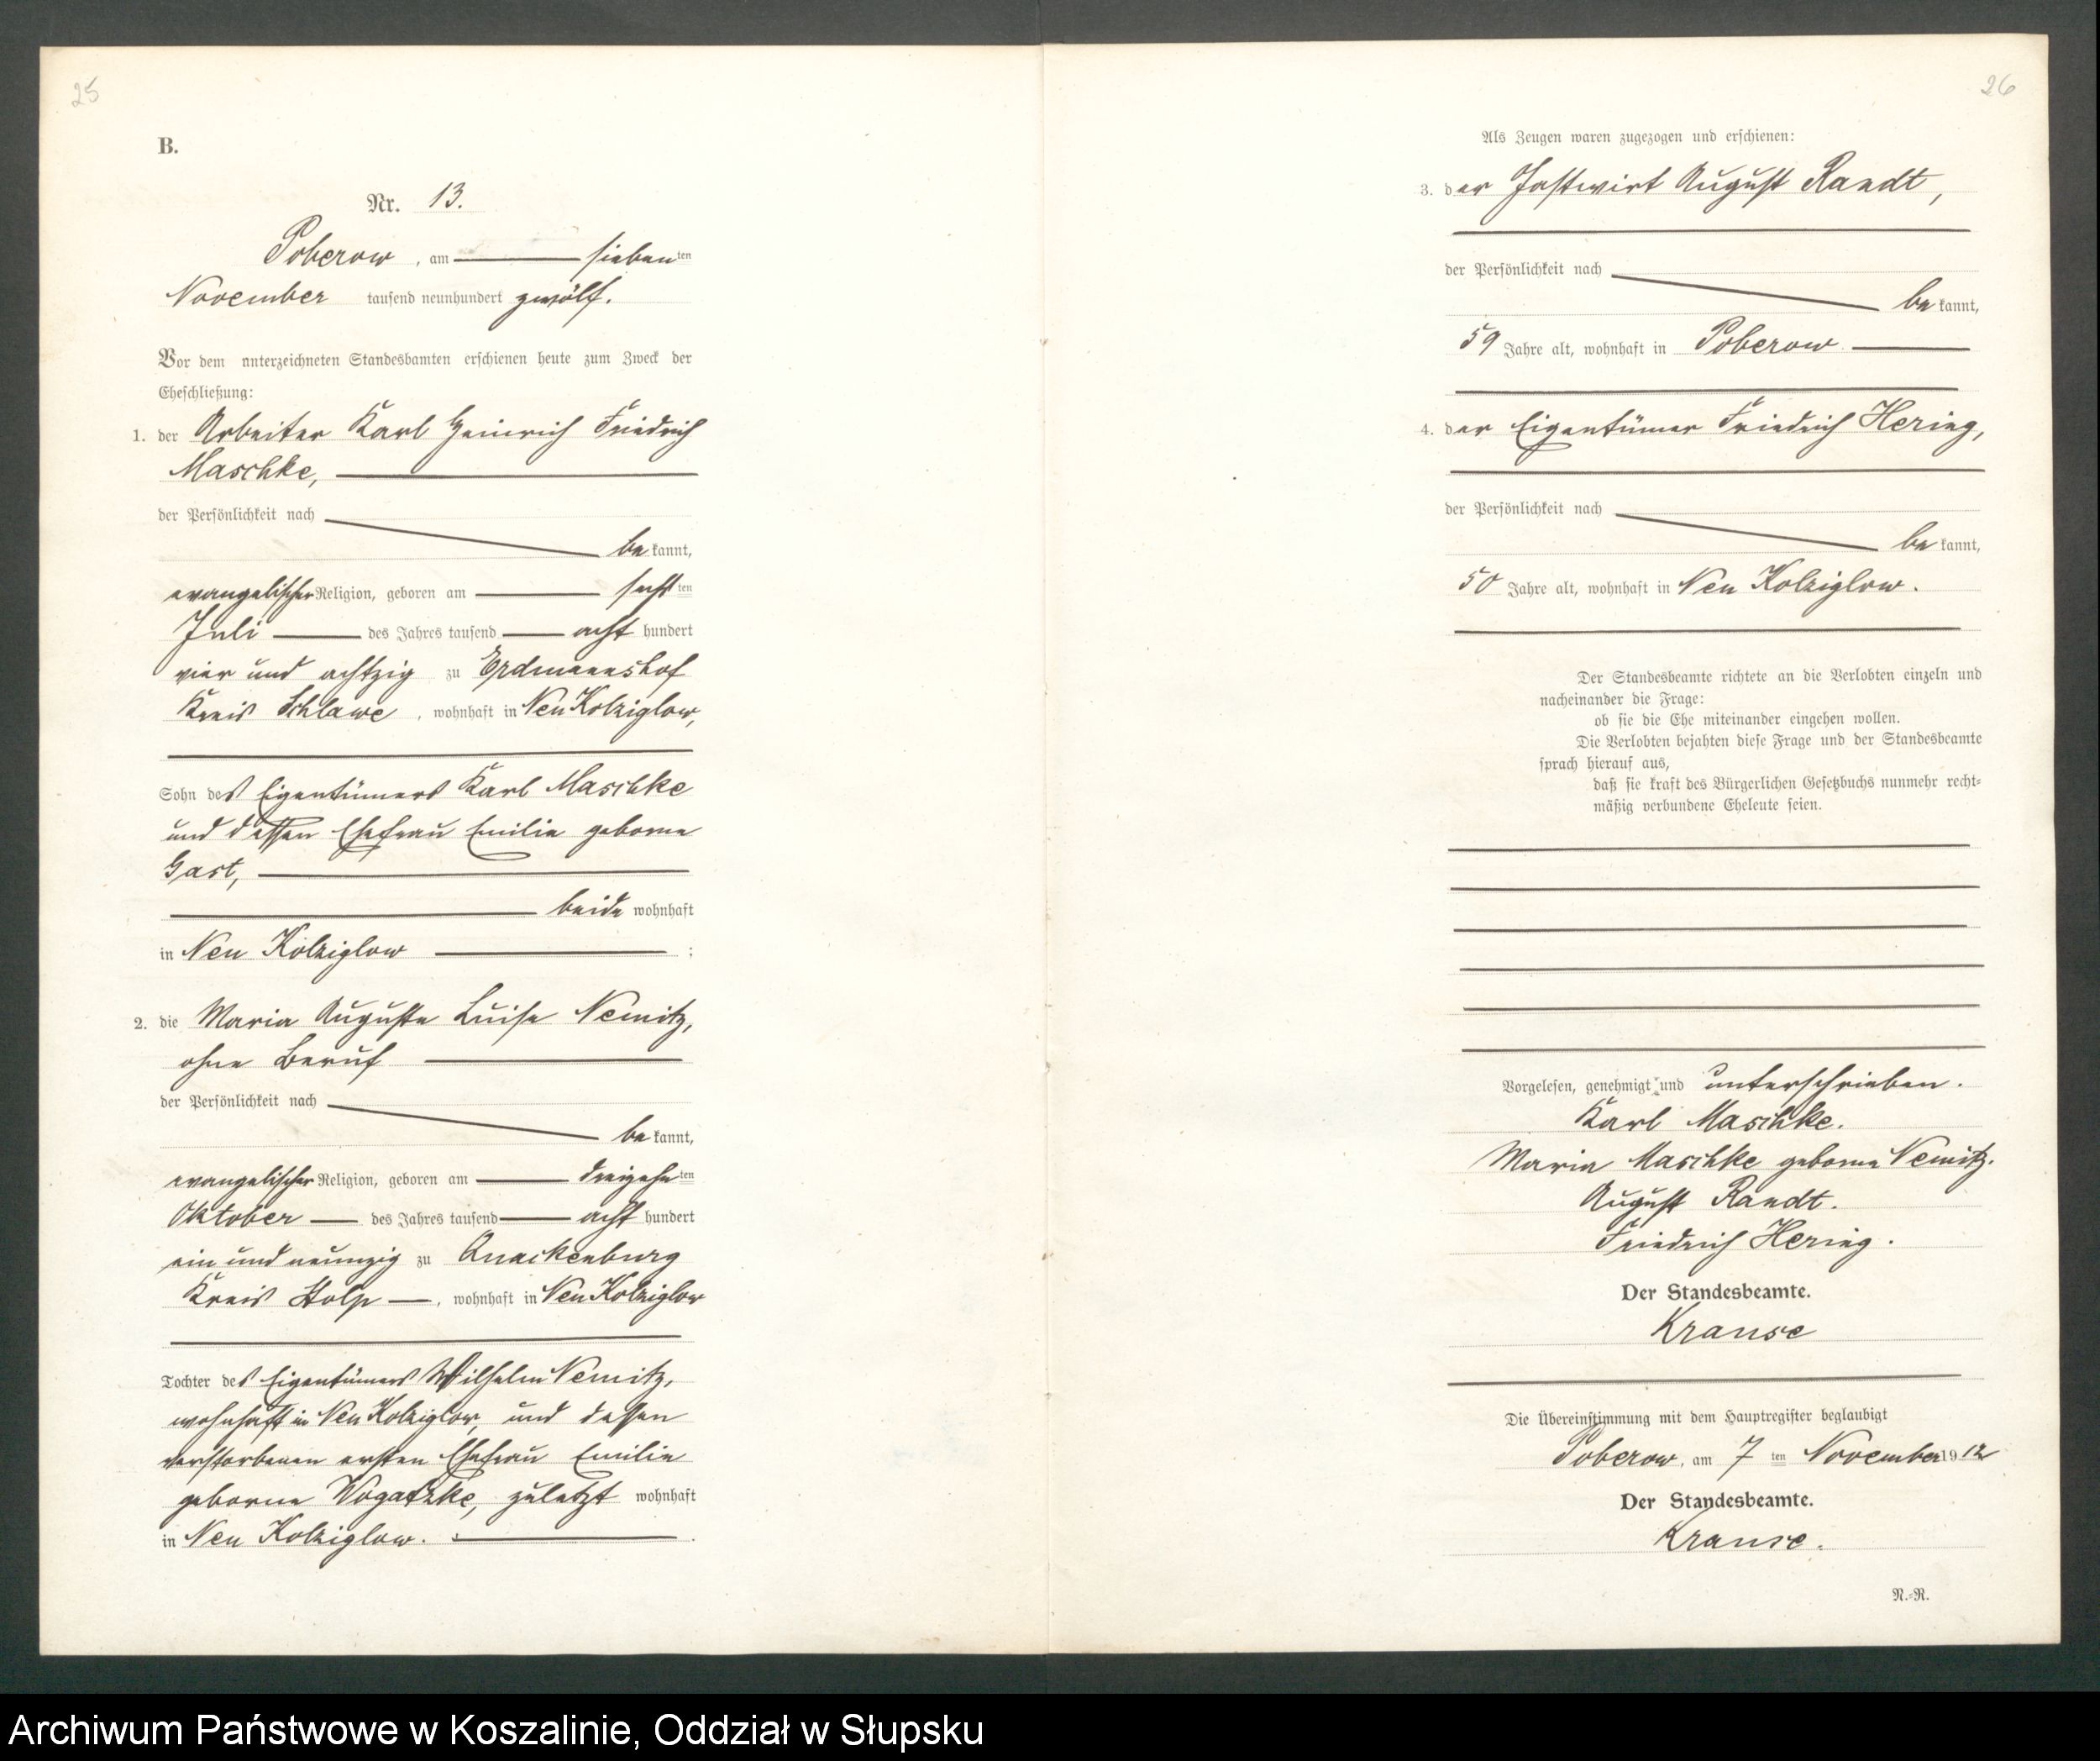 25
B.
Nr. 13.
Poberow, am siebenten
November tausend neunhundert zwölf.
Vor dem unterzeichneten Standesbamten erschienen heute zum Zweck der
Eheschließung:
1. der Arbeiter Karl Heinrich Friedrich
Maschke,
der Persönlichkeit nach
be kannt,
evangelischer Religion, geboren am sechsten
Juli des Jahres tausend acht hundert
vier und achtzig zu Erdmannshof
Kreis Schlawe, wohnhaft in Neu Kolziglow,
Sohn des Eigentümers Karl Maschke
und dessen Ehefrau Emilie geborne
Gast,
beide wohnhaft
in Neu Kolziglow ;
2. die Maria Auguste Luise Nemitz,
ohne Beruf
der Persönlichkeit nach
be kannt,
evangelischer Religion, geboren am dreizehnten
Oktober des Jahres tausend acht hundert
ein und neunzig zu Quackenburg
Kreis Stolp, wohnhaft in Neu Kolziglow
Tochter des Eigentümers Wilhelm Nemitz,
wohnhaft in Neu Kolziglow, und dessen
verstorbenen ersten Ehefrau Emilie
geborne Wogatzke, zuletzt wohnhaft
in Neu Kolziglow.
26
Als Zeugen waren zugezogen und erschienen:
3. der Gastwirt August Randt,
der Persönlichkeit nach
be kannt,
59 Jahre alt, wohnhaft in Poberow
4. der Eigentümer Friedrich Hering,
der Persönlichkeit nach
be kannt,
50 Jahre alt, wohnhaft in Neu Kolziglow.
Der Standesbeamte richtete an die Verlobten einzeln und
nacheinander die Frage:
ob sie die Ehe miteinander eingehen wollen.
Die Verlobten bejahten diese Frage und der Standesbeamte
sprach hierauf aus,
daß sie kraft des Bürgerlichen Gesetzbuchs nunmehr recht-
mäßig verbundene Eheleute seien.
Vorgelesen, genehmigt und unterschrieben.
Karl Maschke.
Maria Maschke geborne Nemitz.
August Randt.
Friedrich Hering.
Der Standesbeamte.
Krause
Die Übereinstimmung mit dem Hauptregister beglaubigt
Poberow, am 7ten November 1912
Der Standesbeamte.
Krause.
N.-R.
Archiwum Państwowe w Koszalinie, Oddział w Słupsku